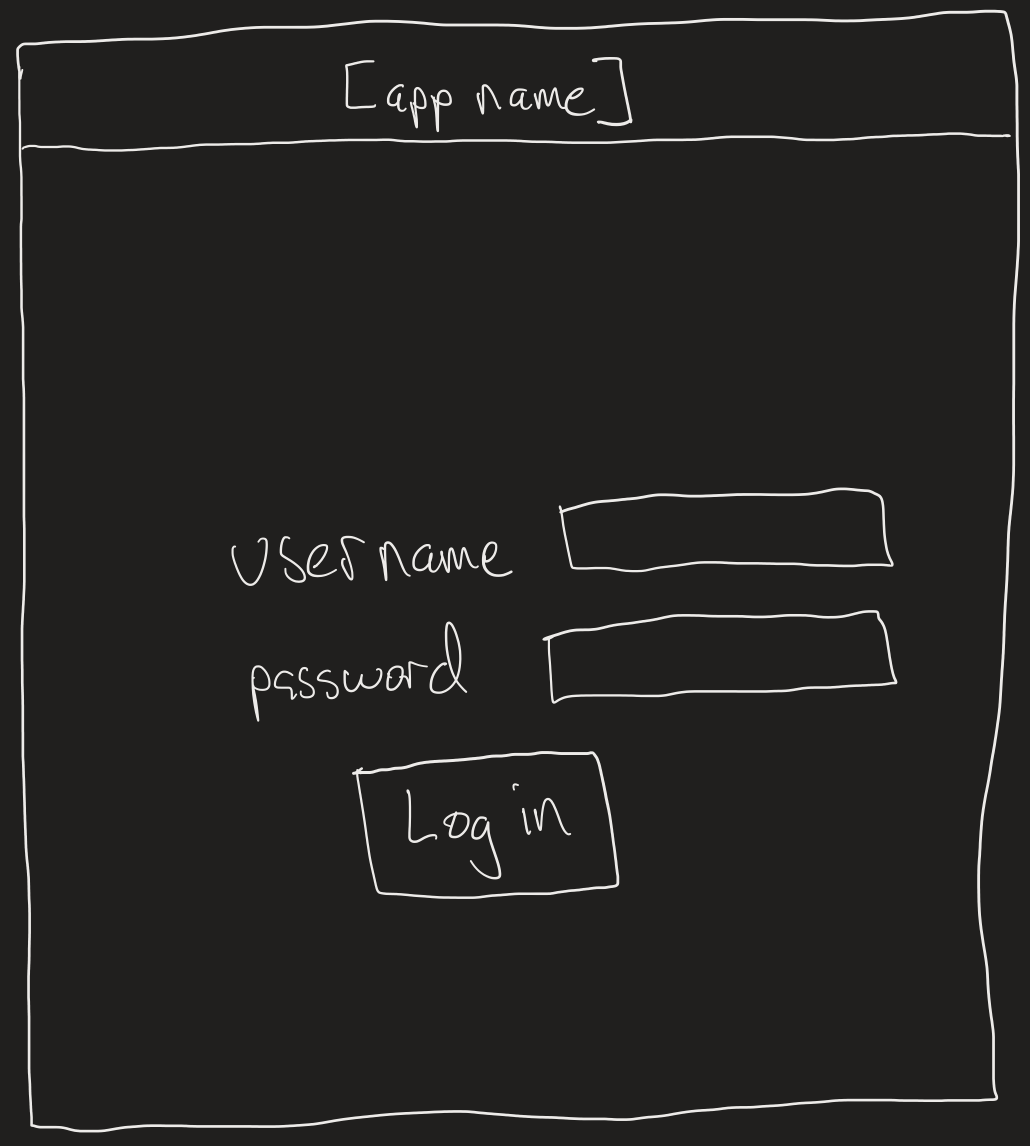 [app name]
username
password
Log in